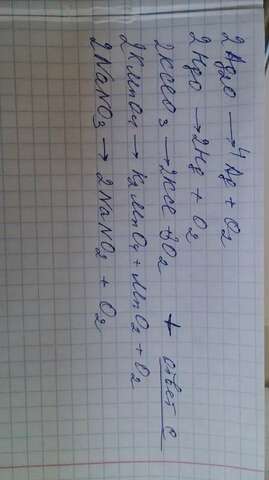 2Ag2O → 4Ag + O2
2HgO → 2Hg + O2
2KClO3 → 2KCl + 3O2
2KMnO4 → K2MnO4 + MnO2 + O2
2NaNO3 → 2NaNO2 + O2
+ ответ с